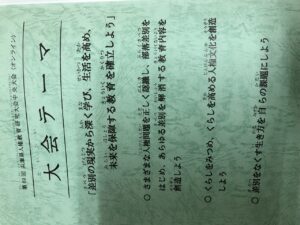 兵庫県人権教育研究大会中央大会(オンライン)
大会テーマ
「差別の現実から深く学び、生活を高め、
未来を保障する教育を確立しよう」
○ さまざまな人権問題を正しく認識し、部落差別を
はじめ、あらゆる差別を解消する教育内容を
創造しよう
○ くらしをみつめ、くらしを高める人権文化を創造
しよう
○ 差別をなくす生き方を自らの課題にしよう